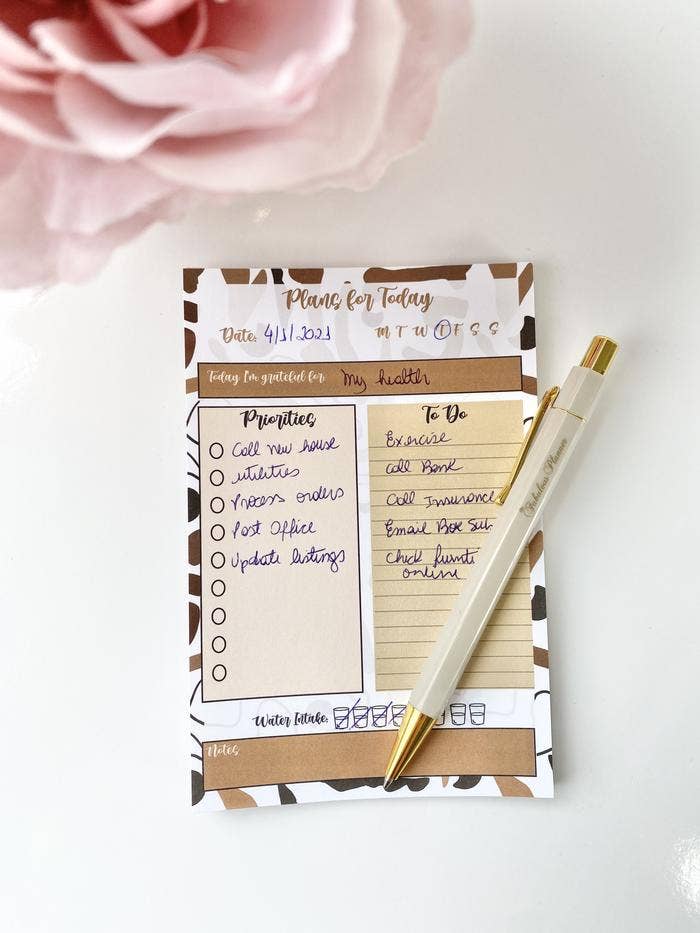 Plans for Today
Date: 4/1/2021 M T W T F S S
Today I'm grateful for: My health
Priorities
Call new house
utilities
Process orders
Post Office
Update listings
To Do
Exercise
Call Bank
Call Insurance
Email Box Sub
Check furnit
online
Water Intake:
Notes
Fabulous Planner